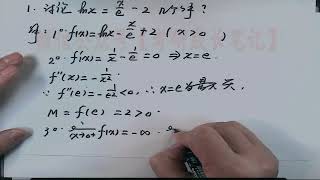 1. 讨论 lnx = x/e - 2 几个根?
解: 1°. f(x) = lnx - x/e + 2 (x > 0)
2°. f'(x) = 1/x - 1/e = 0 ⇒ x = e.
f''(x) = -1/x².
∵ f''(e) = -1/e² < 0, ∴ x = e 为
M = f(e) = 2 > 0.
3°. x→0+ f(x) = -∞.